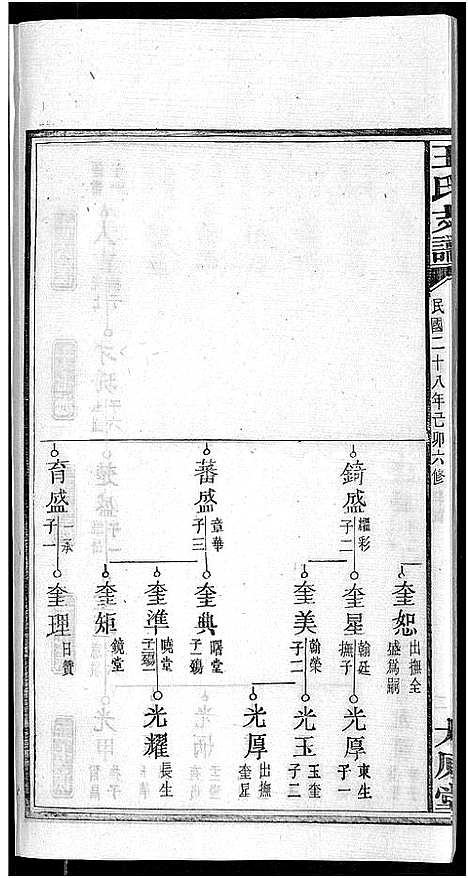 王氏支譜
民國二十八年己卯六修
奎恕 出撫全盛為嗣
錡盛 耀彩 子二
奎星 翰廷 撫子
光厚 東生 子一
奎美 翰榮 子二
光玉 玉奎 子二
光厚 出撫奎星
蕃盛 章華 子三
奎典 曙堂 子殤
奎準 曉堂
光耀 長生
奎矩 鏡堂
育盛 一承 子一
奎理 日贊